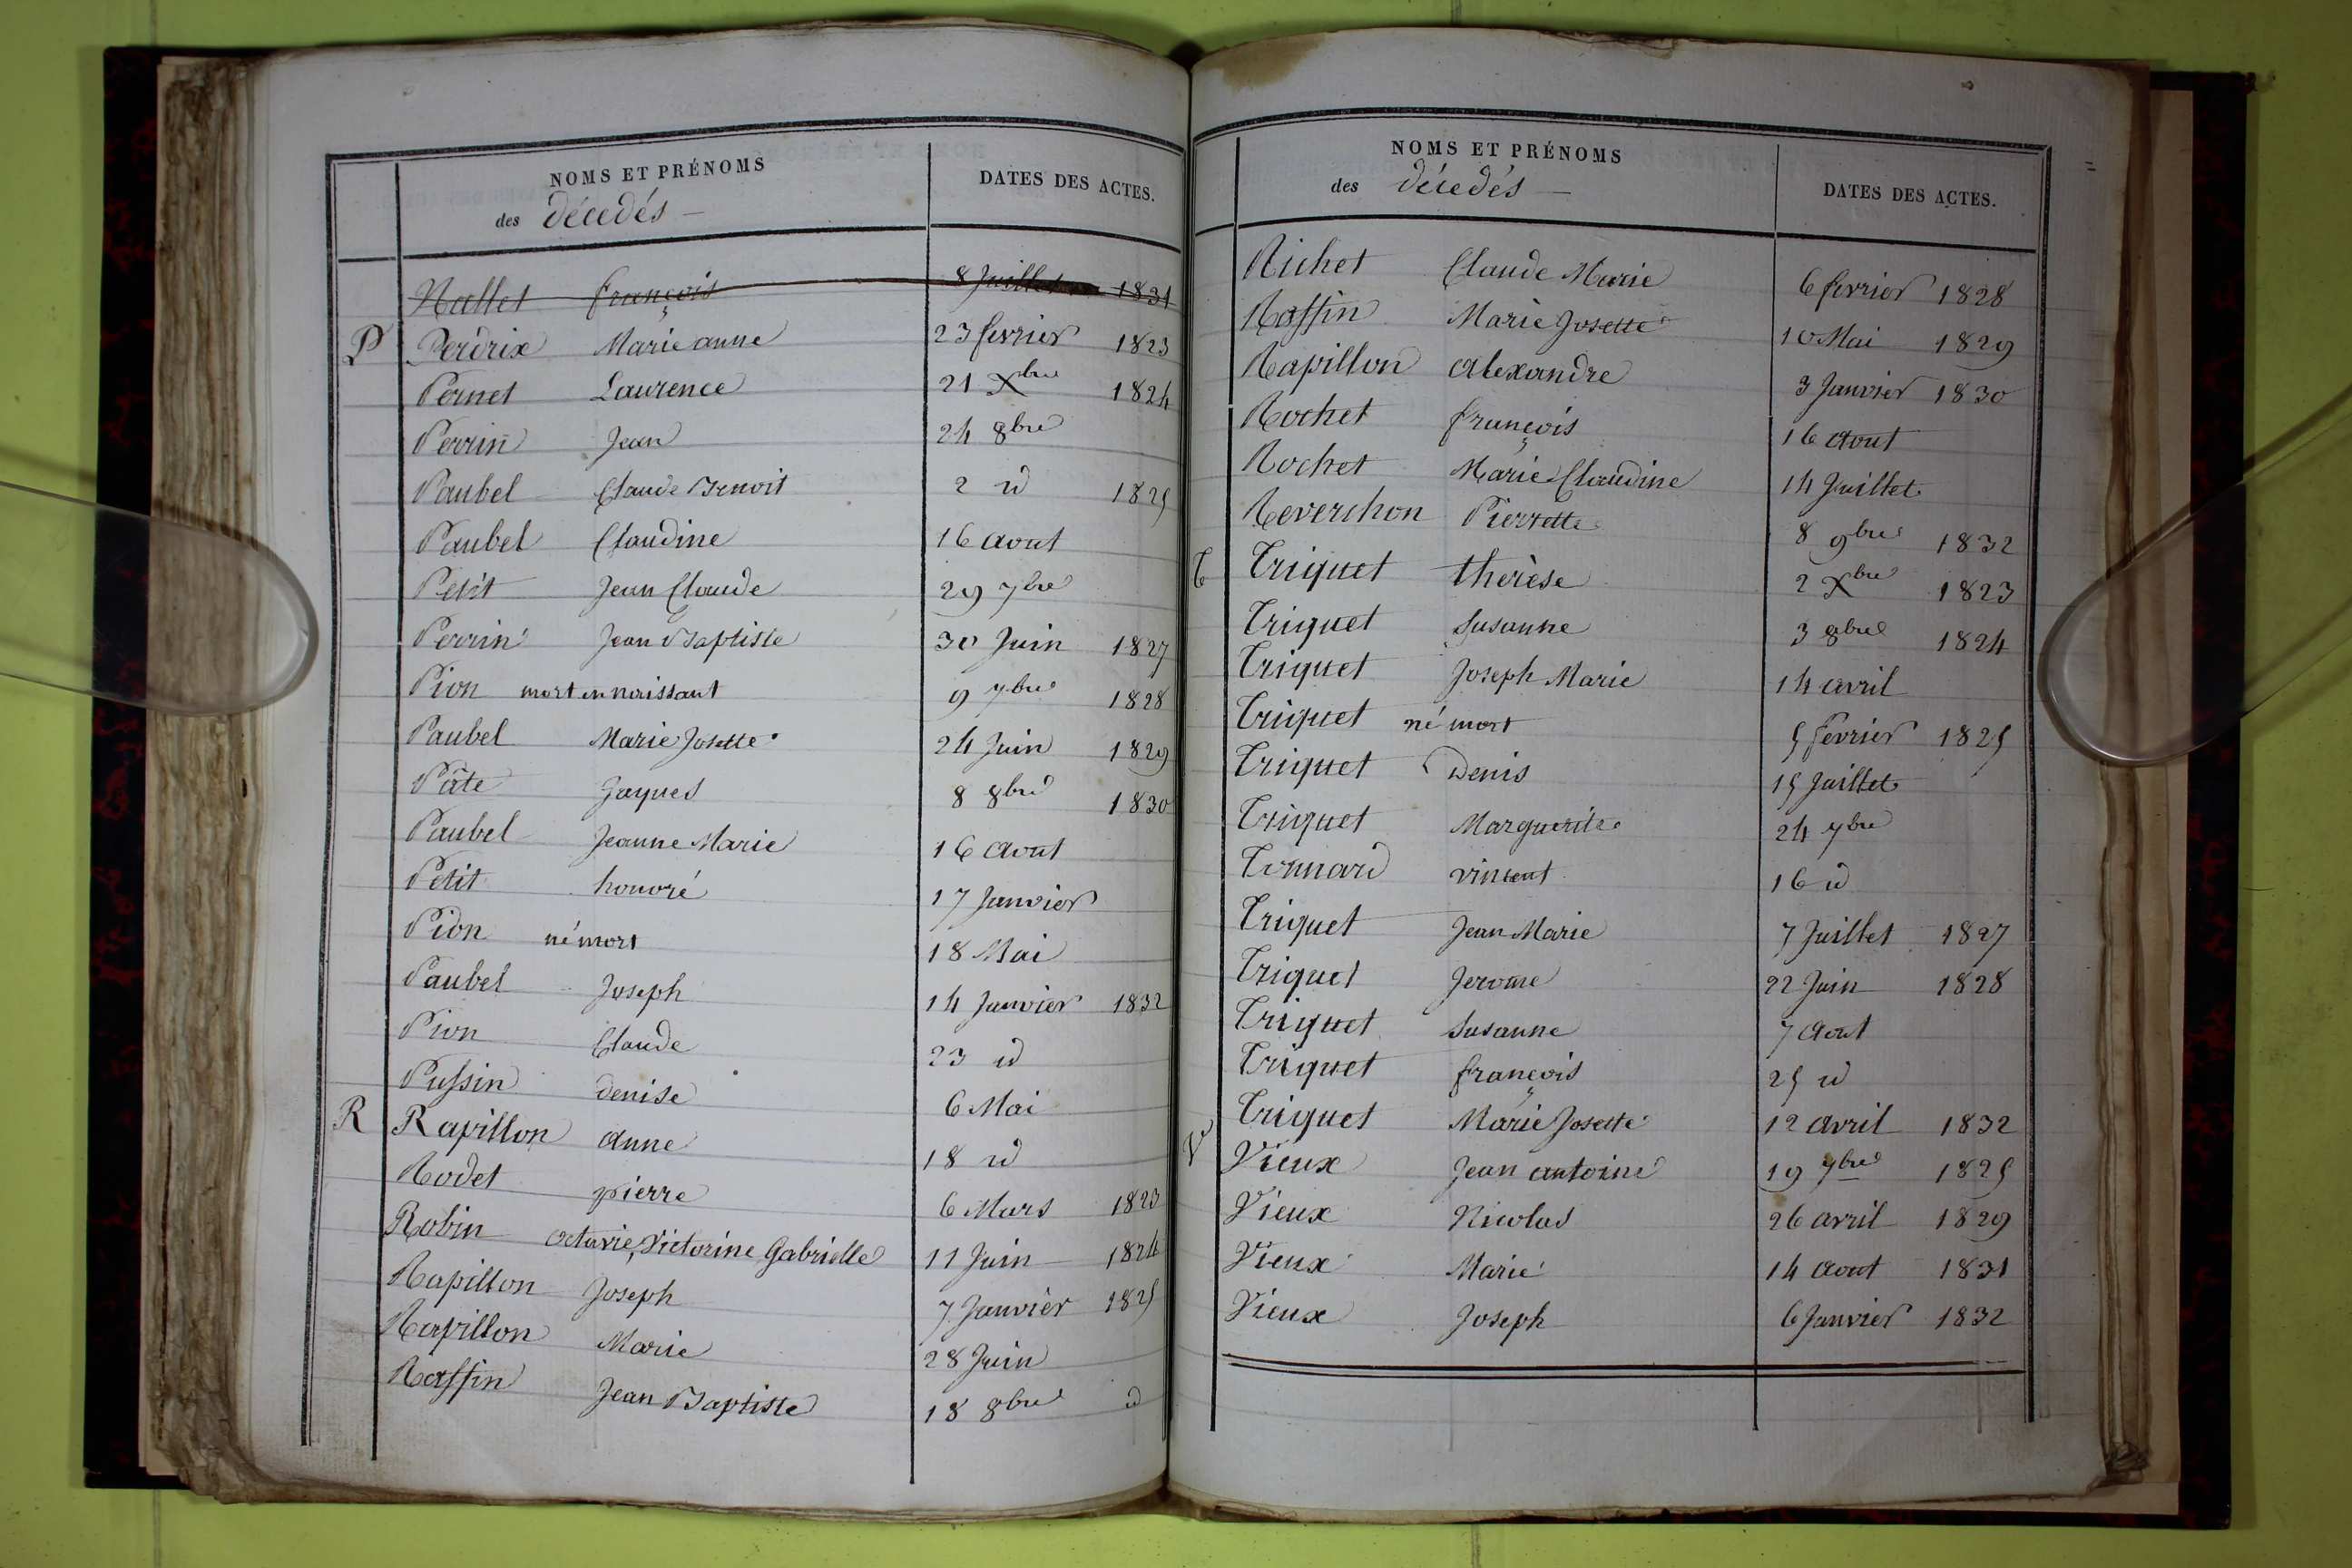 NOMS ET PRÉNOMS
des décedés
DATES DES ACTES.
Nallet françois 8 Juillet 1831
P Perdrix Marie anne 23 fevrier 1823
Pernet Laurence 21 Xbre 1824
Perrin Jean 24 8bre
Paubel Claude Benoit 2 id 1825
Paubel Claudine 16 aout
Petit Jean Claude 29 7bre
Perrin Jean Baptiste 30 Juin 1827
Pion mort en naissant 9 7bre 1828
Paubel Marie Josette 24 Juin 1829
Pâte Jaques 8 8bre 1830
Paubel Jeanne Marie 16 aout
Petit honoré 17 Janvier
Pion né mort 18 Mai
Paubel Joseph 14 Janvier 1832
Pion Claude 23 id
Pussin denise 6 Mai
R Rapillon anne 18 id
Rodet pierre 6 Mars 1823
Robin octavie, Victorine Gabrielle 11 Juin 1824
Rapillon Joseph 7 Janvier 1825
Rapillon Marie 28 Juin
Raffin Jean Baptiste 18 8bre id
NOMS ET PRÉNOMS
des décedés
DATES DES ACTES.
Richet Claude Marie 6 fevrier 1828
Raffin Marie Josette 10 Mai 1829
Rapillon alexandre 3 Janvier 1830
Rochet françois 16 aout
Rochet Marie Claudine 14 Juillet
Reverchon Pierrette 8 9bre 1832
T Triquet thérèse 2 Xbre 1823
Triquet Susanne 3 8bre 1824
Triquet Joseph Marie 14 avril
Triquet né mort 5 fevrier 1825
Triquet Denis 15 Juillet
Triquet Marguerite 24 7bre
Tonnard vincent 16 id
Triquet Jean Marie 7 Juillet 1827
Triquet Jerome 22 Juin 1828
Triquet Susanne 7 aout
Triquet françois 25 id
Triquet Marie Josette 12 avril 1832
V Vieux Jean antoine 19 7bre 1825
Vieux Nicolas 26 avril 1829
Vieux Marie 14 aout 1831
Vieux Joseph 6 Janvier 1832